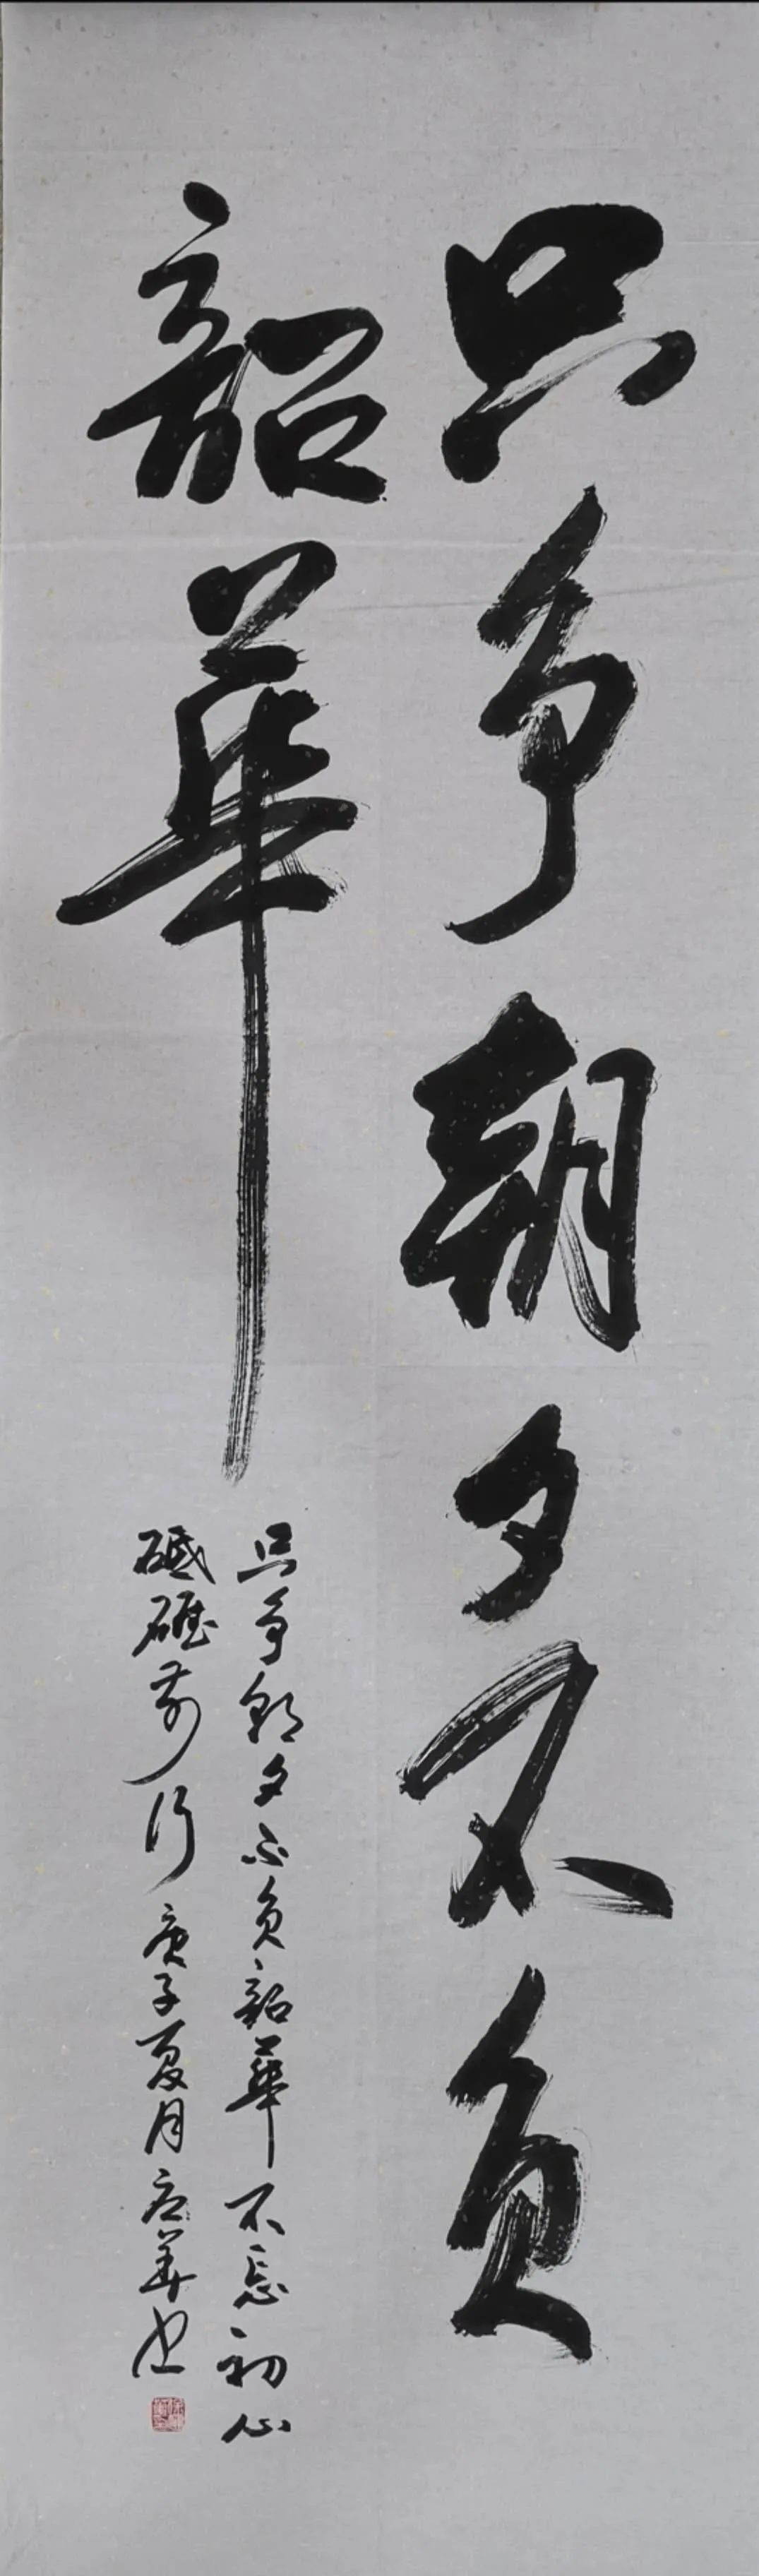 只争朝夕不负
韶華
只争朝夕不负韶華不忘初心
砥砺前行庚子夏月